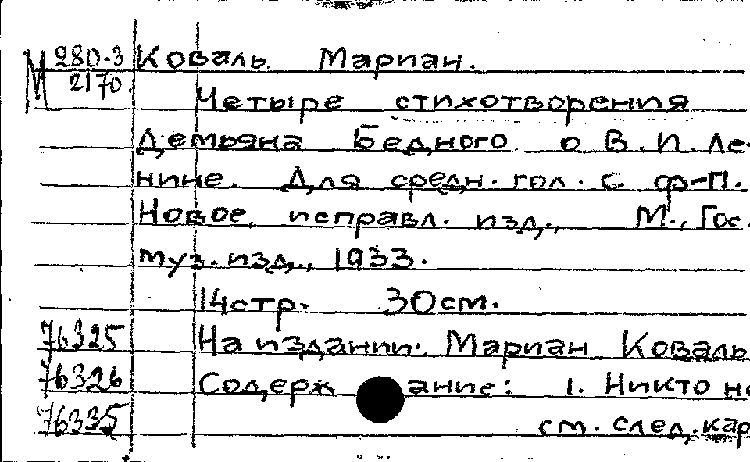 М 280-3 Коваль Мариан.
2170 Четыре стихотворения
Демьяна Бедного о В.И.Ле-
нине. Для средн. гол. с ф-п.
Новое, исправл. изд., М., Гос.
муз. изд., 1933.
14стр. 30см.
76325 На издании: Мариан Коваль
76326 Содержание: 1. Никто не
76335 см. след. кар